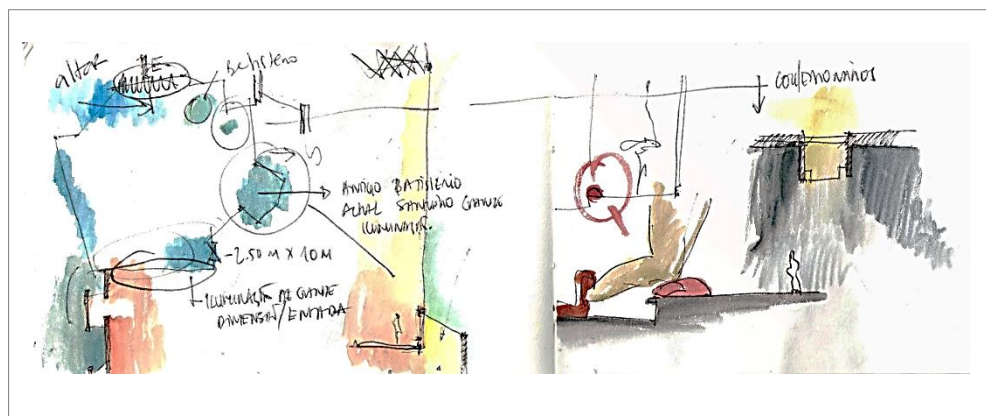 altar
Batistério
S
ANTIGO BATISTERIO
ATUAL SANTUÁRIO GRANDE
ILUMINAÇÃO.
-2.50 M X 10 M
ILUMINAÇÃO DE GRANDE
DIMENSÃO/ENTRADA